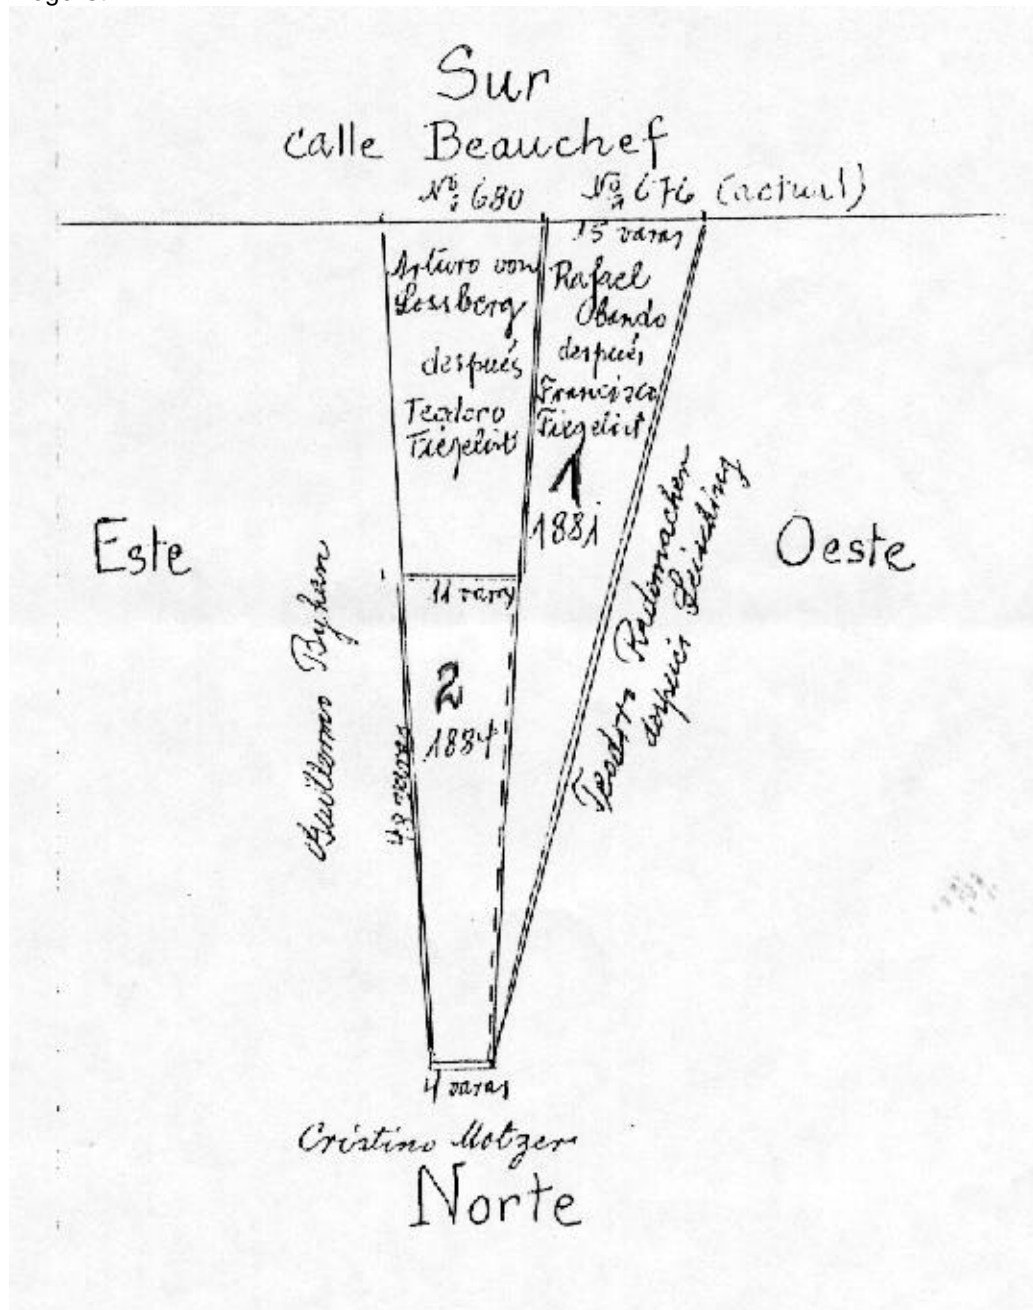 Sur
calle Beauchef
Nº 680
Nº 676 (actual)
15 varas
Arturo von
Lossberg
después
Teodoro
Fiegelist
Rafael
Obando
después
Francisco
Fiegelist
1
1881
Este
Oeste
11 varas
2
1884
48 varas
Guillermo Byhan
Teodoro Rademacher
después
4 varas
Cristino Motzer
Norte